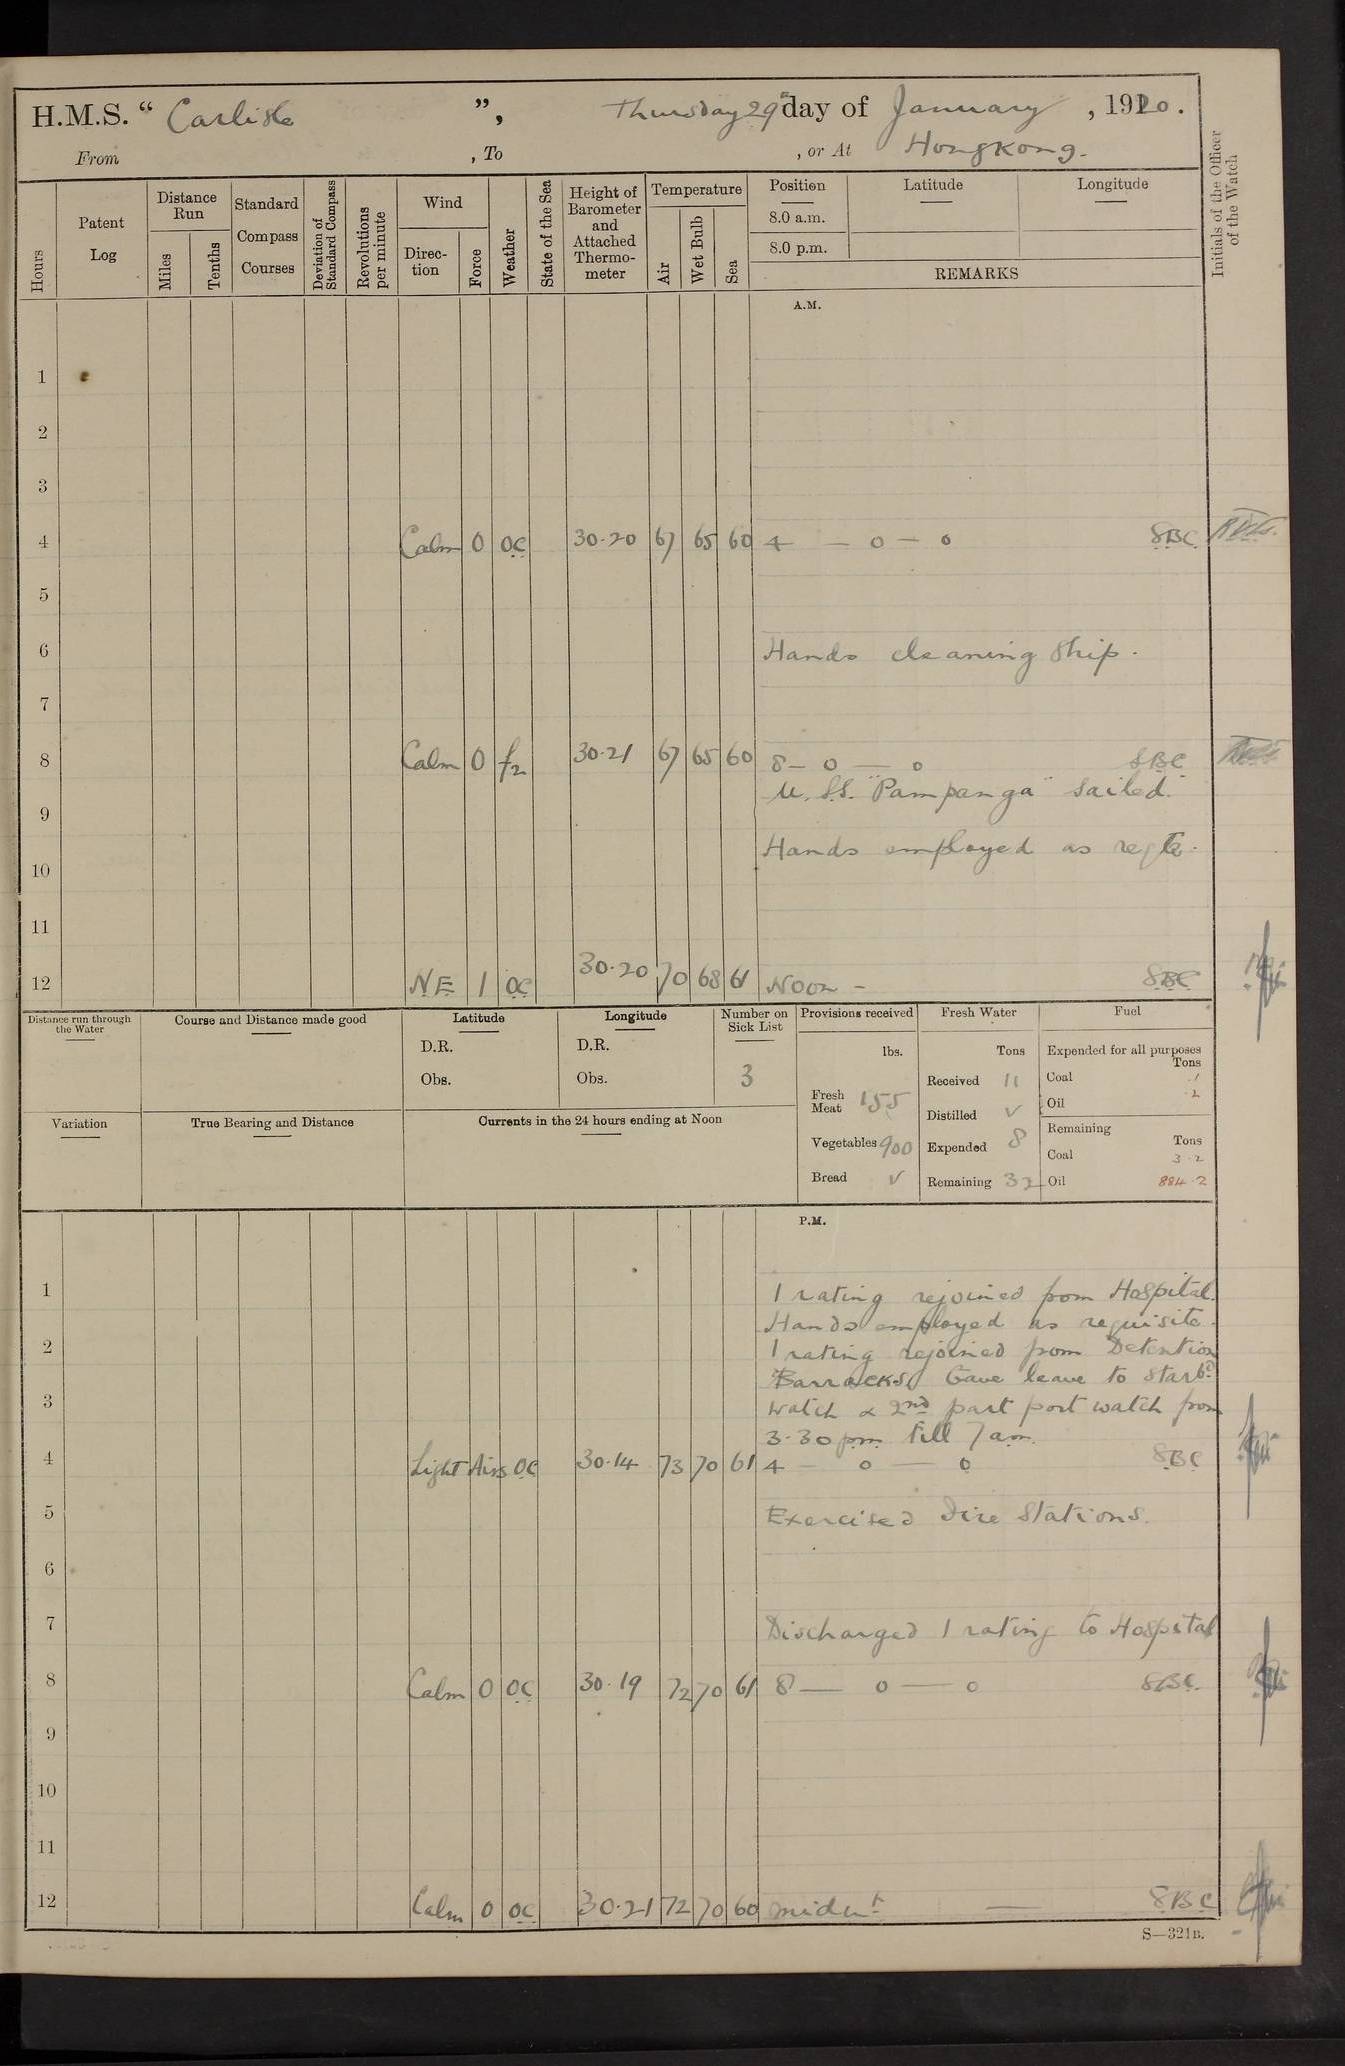 H.M.S. “ Carlisle ”, Thursday 29th day of January , 1920.
From , To , or At HongKong.
Hours
Patent Log
Distance Run
Miles
Tenths
Standard Compass Courses
Deviation of Standard Compass
Revolutions per minute
Wind
Direction
Force
Weather
State of the Sea
Height of Barometer and Attached Thermometer
Temperature
Air
Wet Bulb
Sea
Position Latitude Longitude
8.0 a.m.
8.0 p.m.
REMARKS
Initials of the Officer of the Watch
A.M.
1
2
3
4 Calm 0 oc 30.20 67 65 60 4 — o — o 8BC
5
6 Hands cleaning Ship.
7
8 Calm 0 f2 30.21 67 65 60 8 — o — o 8BC
U.S.S. "Pampanga" sailed.
9
Hands employed as reqte.
10
11
12 NE 1 oc 30.20 70 68 61 Noon — 8BC
Distance run through the Water
Course and Distance made good
Latitude
D.R.
Obs.
Longitude
D.R.
Obs.
Number on Sick List
3
Provisions received
lbs.
Fresh Meat 155
Vegetables 900
Bread ✓
Fresh Water
Tons
Received 11
Distilled ✓
Expended 8
Remaining 32
Fuel
Expended for all purposes
Tons
Coal .1
Oil .2
Remaining
Tons
Coal 3.2
Oil 884.2
Variation
True Bearing and Distance
Currents in the 24 hours ending at Noon
P.M.
1 1 rating rejoined from Hospital.
Hands employed as requisite.
2 1 rating rejoined from Detention
Barracks. Gave leave to Starbd
3 watch & 2nd part port watch from
3.30 pm till 7 am.
4 Light Airs oc 30.14 73 70 61 4 — o — o 8BC
5 Exercised Fire Stations.
6
7 Discharged 1 rating to Hospital
8 Calm 0 oc 30.19 72 70 61 8 — o — o 8BC.
9
10
11
12 Calm 0 oc 30.21 72 70 60 midnt — 8BC
S—321B.